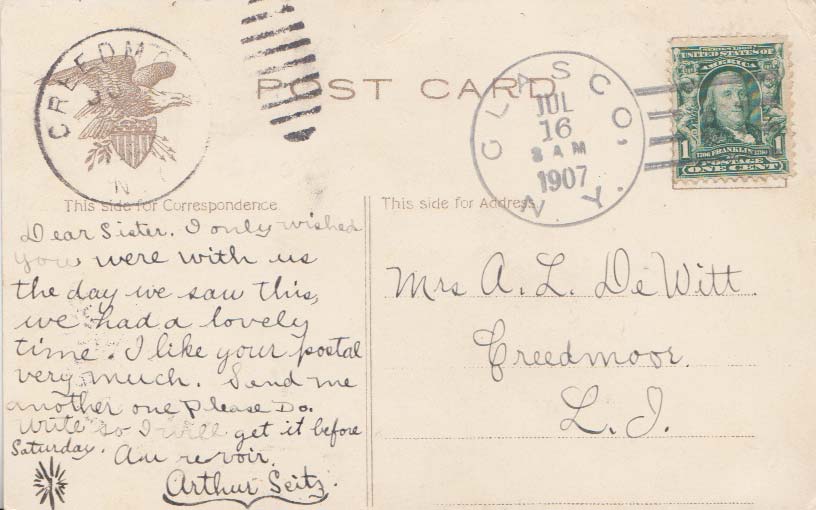 CREEDMO
N
POST CARD
GLASCO, N.Y.
JUL
16
8 AM
1907
SERIES 1902
UNITED STATES OF
AMERICA
1 1790 FRANKLIN 1
POSTAGE
ONE CENT
This side for Correspondence
Dear Sister. I only wished
you were with us
the day we saw this,
we had a lovely
time. I like your postal
very much. Send me
another one Please Do.
Write so I will get it before
Saturday.
Au revoir.
Arthur Seitz.
This side for Address
Mrs A. L. DeWitt.
Creedmoor.
L. I.